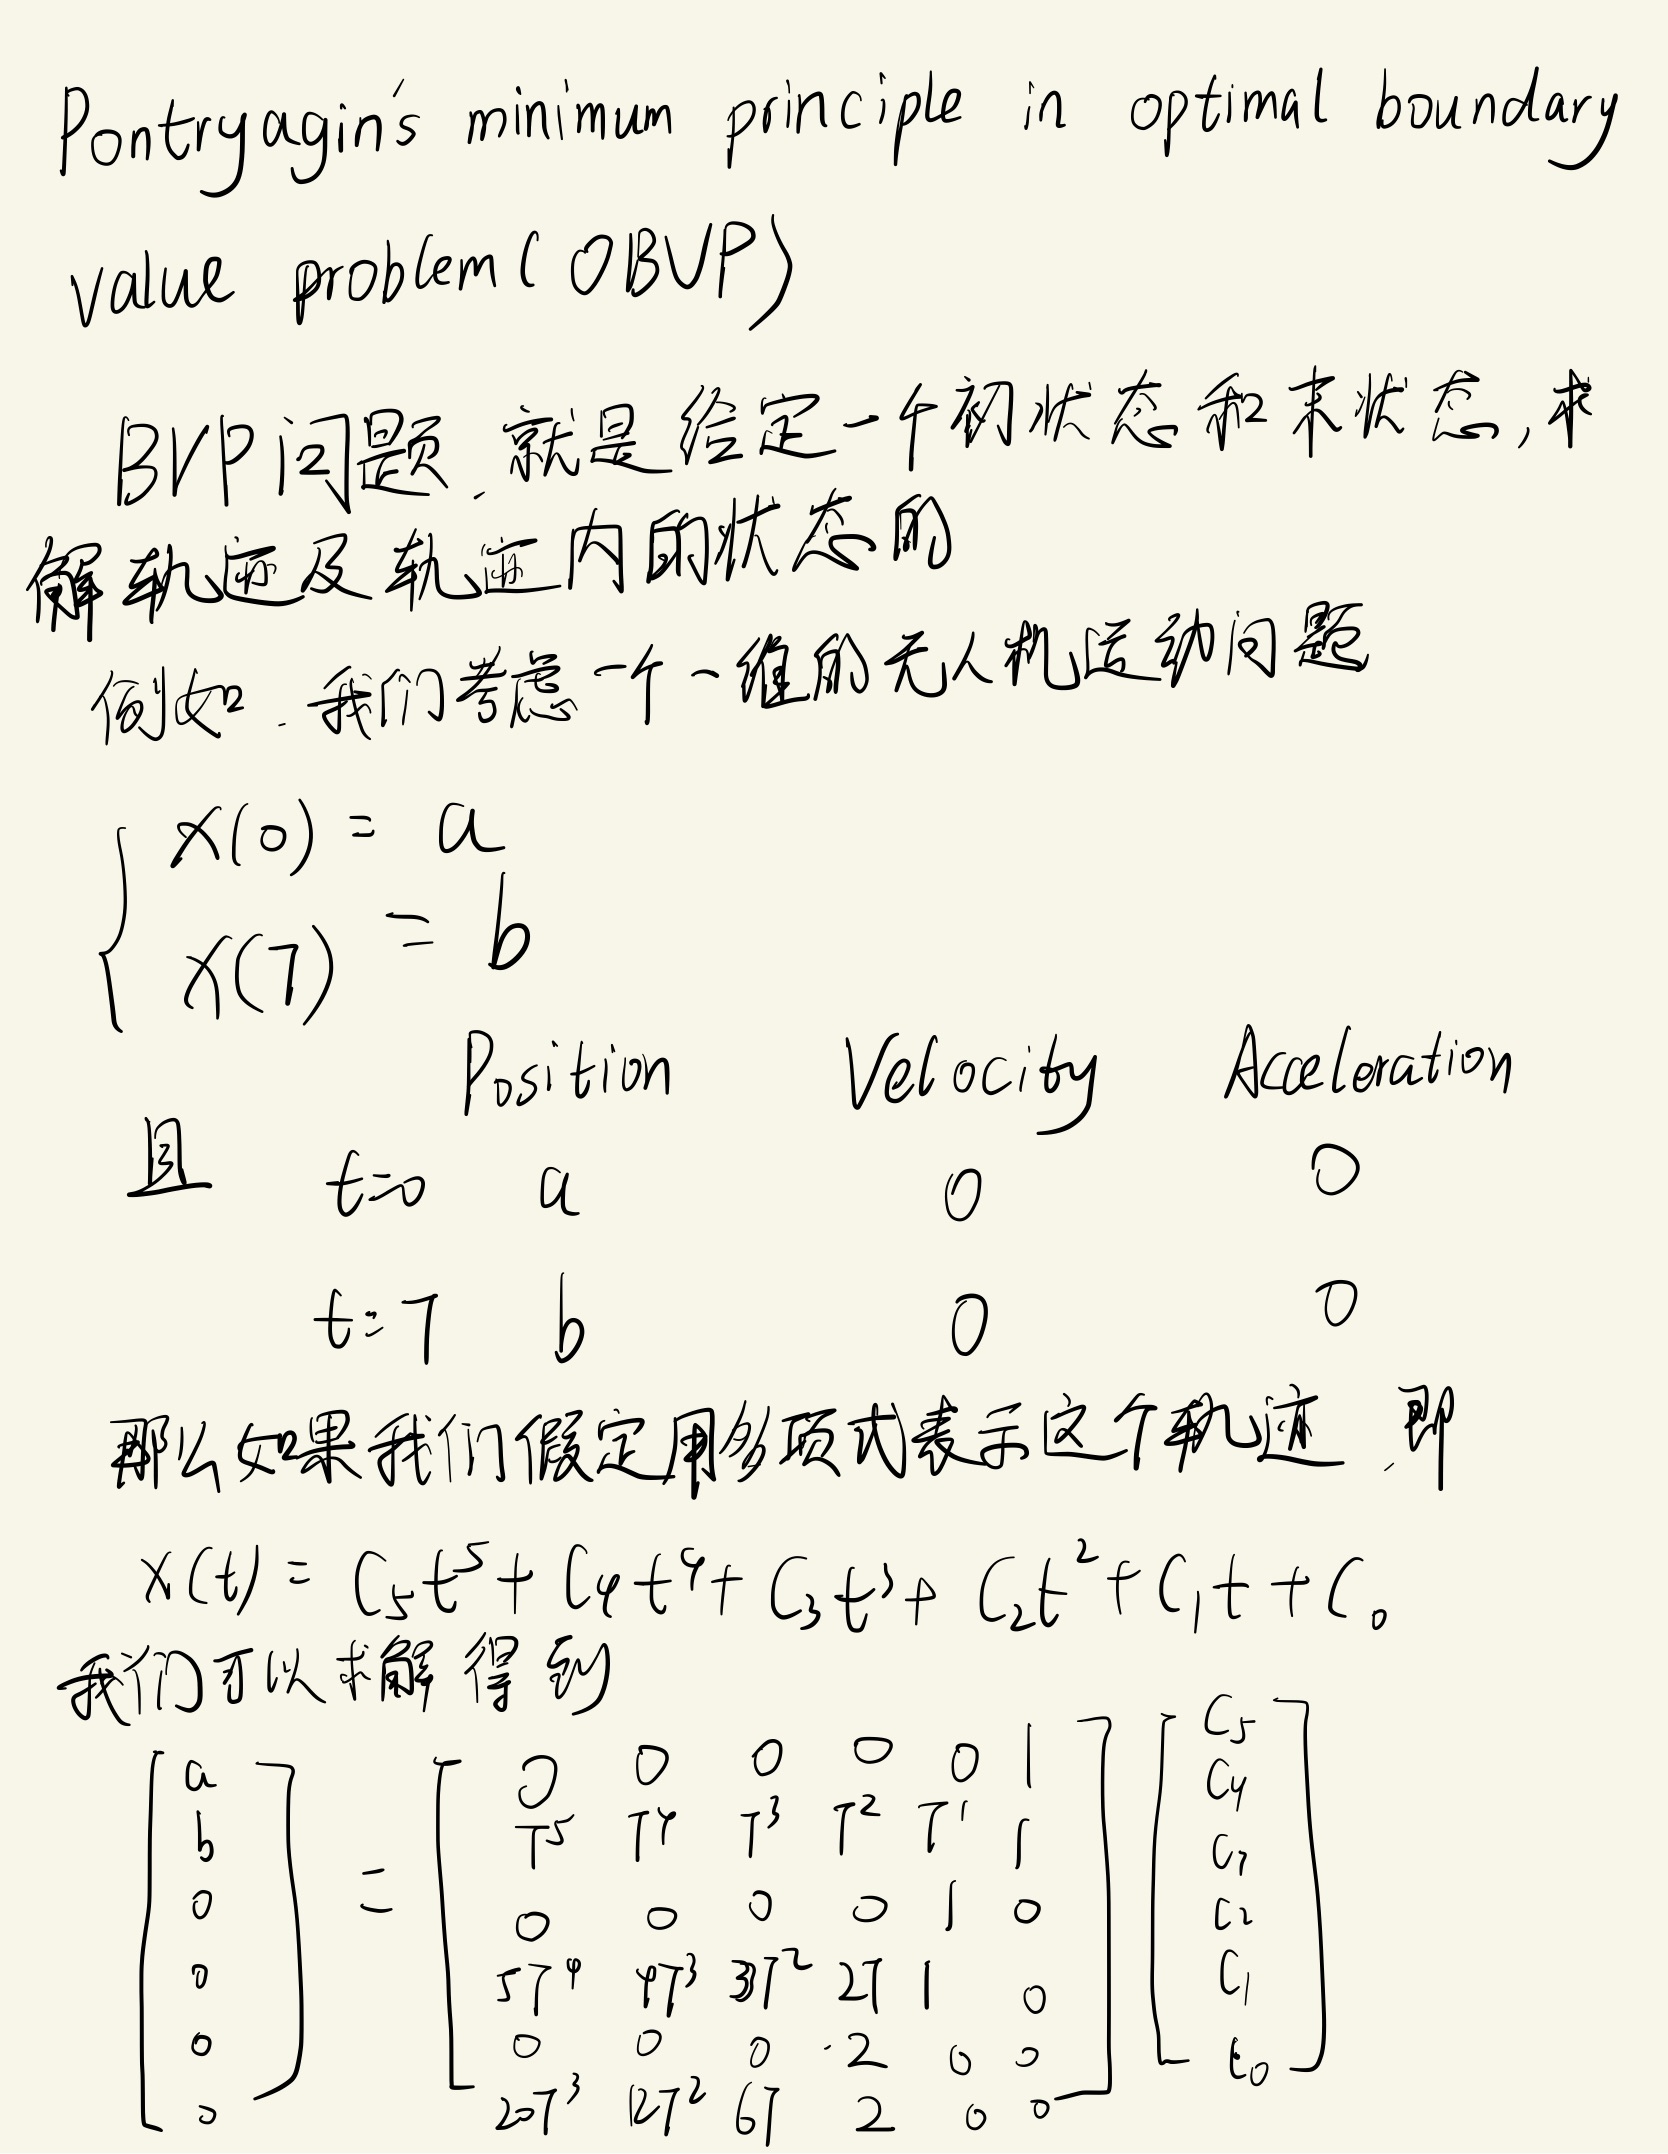 Pontryagin's minimum principle in optimal boundary
value problem( OBVP)
BVP问题,就是给定一个初状态和末状态,求
解轨迹及轨迹内的状态的
例如,我们考虑一个一维的无人机运动问题
x(0) = a
x(T) = b
Position Velocity Acceleration
且 t=0 a 0 0
t=T b 0 0
那么如果我们假定用多项式表示这个轨迹,即
x(t) = C₅t⁵ + C₄t⁴ + C₃t³ + C₂t² + C₁t + C₀
我们可以求解得到
a 0 0 0 0 0 1 C₅
b T⁵ T⁴ T³ T² T¹ 1 C₄
0 = 0 0 0 0 1 0 C₃
0 5T⁴ 4T³ 3T² 2T 1 0 C₂
0 0 0 0 2 0 0 C₁
0 20T³ 12T² 6T 2 0 0 t₀